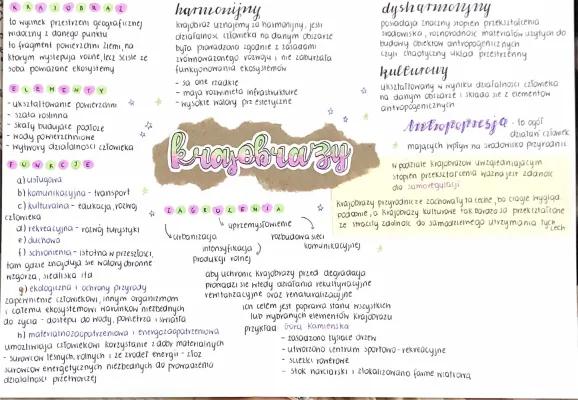 KRAJOBRAZ
to wycinek przestrzeni geograficznej
widoczny z danego punktu
to fragment powierzchni ziemi, na
którym występują różne, lecz ściśle ze
sobą powiązane ekosystemy
ELEMENTY
- ukształtowanie powierzchni
- szata roślinna
- skały budujące podłoże
- wody powierzchniowe
- wytwory działalności człowieka
FUNKCJE
a) usługowa
b) komunikacyjna - transport
c) kulturalna - edukacja, rozwój
człowieka
d) rekreacyjna - rozwój turystyki
e) duchowa
f) schronienia - istotna w przeszłości,
tam gdzie znajdują się walory obronne
wzgórza, siedliska itd
g) ekologiczna i ochrony przyrody
zapewnienie człowiekowi, innym organizmom
i całemu ekosystemowi warunków niezbędnych
do życia - dostępu do wody, powietrza i światła
h) materialnozaopatrzeniowa i energozaopatrzeniowa
umożliwiają człowiekowi korzystanie z dóbr materialnych
- surowców leśnych, rolnych i ze źródeł energii - złoż
surowców energetycznych niezbędnych do prowadzenia
działalności przetwórczej
harmonijny
krajobraz uznajemy za harmonijny, jeśli
działalność człowieka na danym obszarze
była prowadzona zgodnie z zasadami
zrównoważonego rozwoju i nie zaburzała
funkcjonowania ekosystemów
- są one rzadkie
- mają rozwiniętą infrastrukturę
- wysokie walory pro estetyczne
krajobrazy
ZAGROŻENIA
uprzemysłowienie
urbanizacja
rozbudowa sieci
komunikacyjnej
intensyfikacja
produkcji rolnej
aby uchronić krajobrazy przed degradacją
prowadzi się wtedy działania rekultywacyjne
rewitalizacyjne oraz renaturalizacyjne
ich celem jest poprawa stanu wszystkich
lub wybranych elementów krajobrazu
przykład Góra Kamieńska
- zasadzono tysiące drzew
- utworzono centrum sportowo - rekreacyjne
- ścieżki rowerowe
- stok narciarski i zlokalizowano farmę wiatrową
dysharmonijny
posiadają znaczny stopień przekształcenia
środowiska, różnorodność materiałów użytych do
budowy obiektów antropogenicznych
czyli chaotyczny układ przestrzenny
kulturowy
ukształtowany w wyniku działalności człowieka
na danym obszarze i składa się z elementów
antropogenicznych
Antropopresja - to ogół
działań człowieka
mających wpływ na środowisko przyrodnicze
w podziale krajobrazów uwzględniającym
stopień przekształcenia ważna jest zdolność
do samoregulacji
krajobrazy przyrodnicze zachowały tę cechę, bo ciągle wygląd.
podobnie, a krajobrazy kulturowe tak bardzo są przekształcone
że straciły zdolność do samodzielnego utrzymania tych
cech